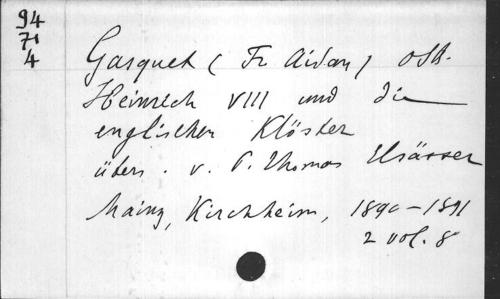 94
71
4
Gasquet (Fr Aidan) OSB.
Heinrich VIII und die
englischen Klöster
übers. v. P. Thomas Elsässer
Mainz, Kirchheim, 1890-1891
2 vol. 8°